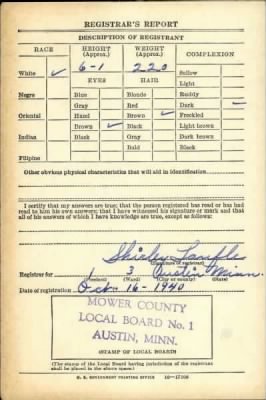 REGISTRAR'S REPORT
DESCRIPTION OF REGISTRANT
RACE HEIGHT (Approx.) WEIGHT (Approx.) COMPLEXION
White ✓ 6-1 220 Sallow
EYES HAIR Light
Negro Blue Blonde Ruddy
Gray Red Dark ✓
Oriental Hazel Brown ✓ Freckled
Brown ✓ Black Light brown
Indian Black Gray Dark brown
Bald Black
Filipino
Other obvious physical characteristics that will aid in identification
I certify that my answers are true; that the person registered has read or has
had read to him his own answers; that I have witnessed his signature or mark and that
all of his answers of which I have knowledge are true, except as follows:
Shirley
(Signature of registrar)
Registrar for 1 3 Austin Minn.
(Precinct) (Ward) (City or county) (State)
Date of registration Oct 16-1940
MOWER COUNTY
LOCAL BOARD No. 1
AUSTIN, MINN.
(STAMP OF LOCAL BOARD)
(The stamp of the Local Board having jurisdiction of the registrant
shall be placed in the above space.)
U. S. GOVERNMENT PRINTING OFFICE